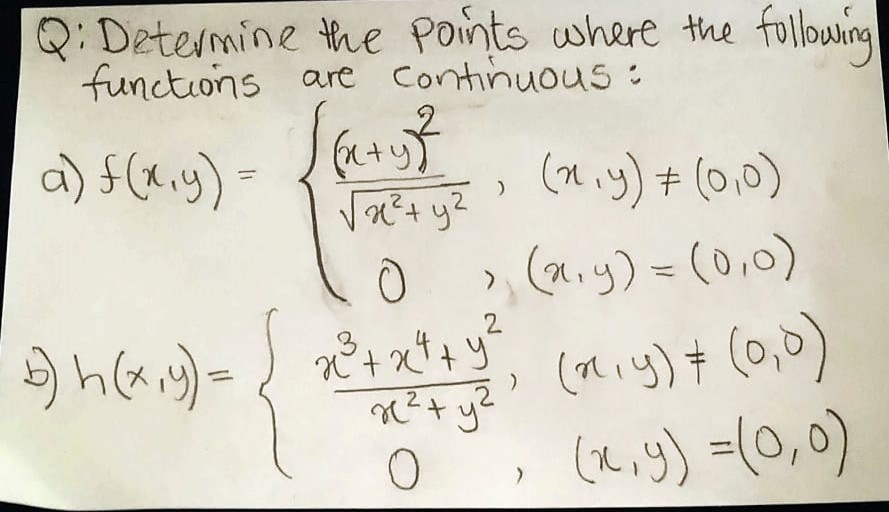 Q: Determine the points where the following
functions are continuous:
a) f(x,y) = { (x+y)² / √x²+y² , (x,y) ≠ (0,0)
0 , (x,y) = (0,0)
b) h(x,y) = { x³+x⁴+y² / x²+y² , (x,y) ≠ (0,0)
0 , (x,y) = (0,0)